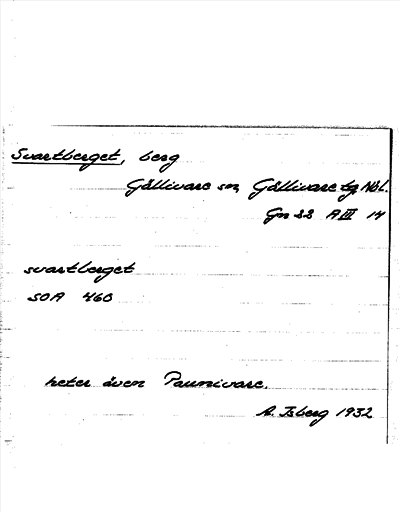 Svartberget, berg
Gällivare sn, Gällivare tg Nbl.
Gn 22 A III 14
svartberget
SOA 460
heter även Paunivare.
A. Isberg 1932